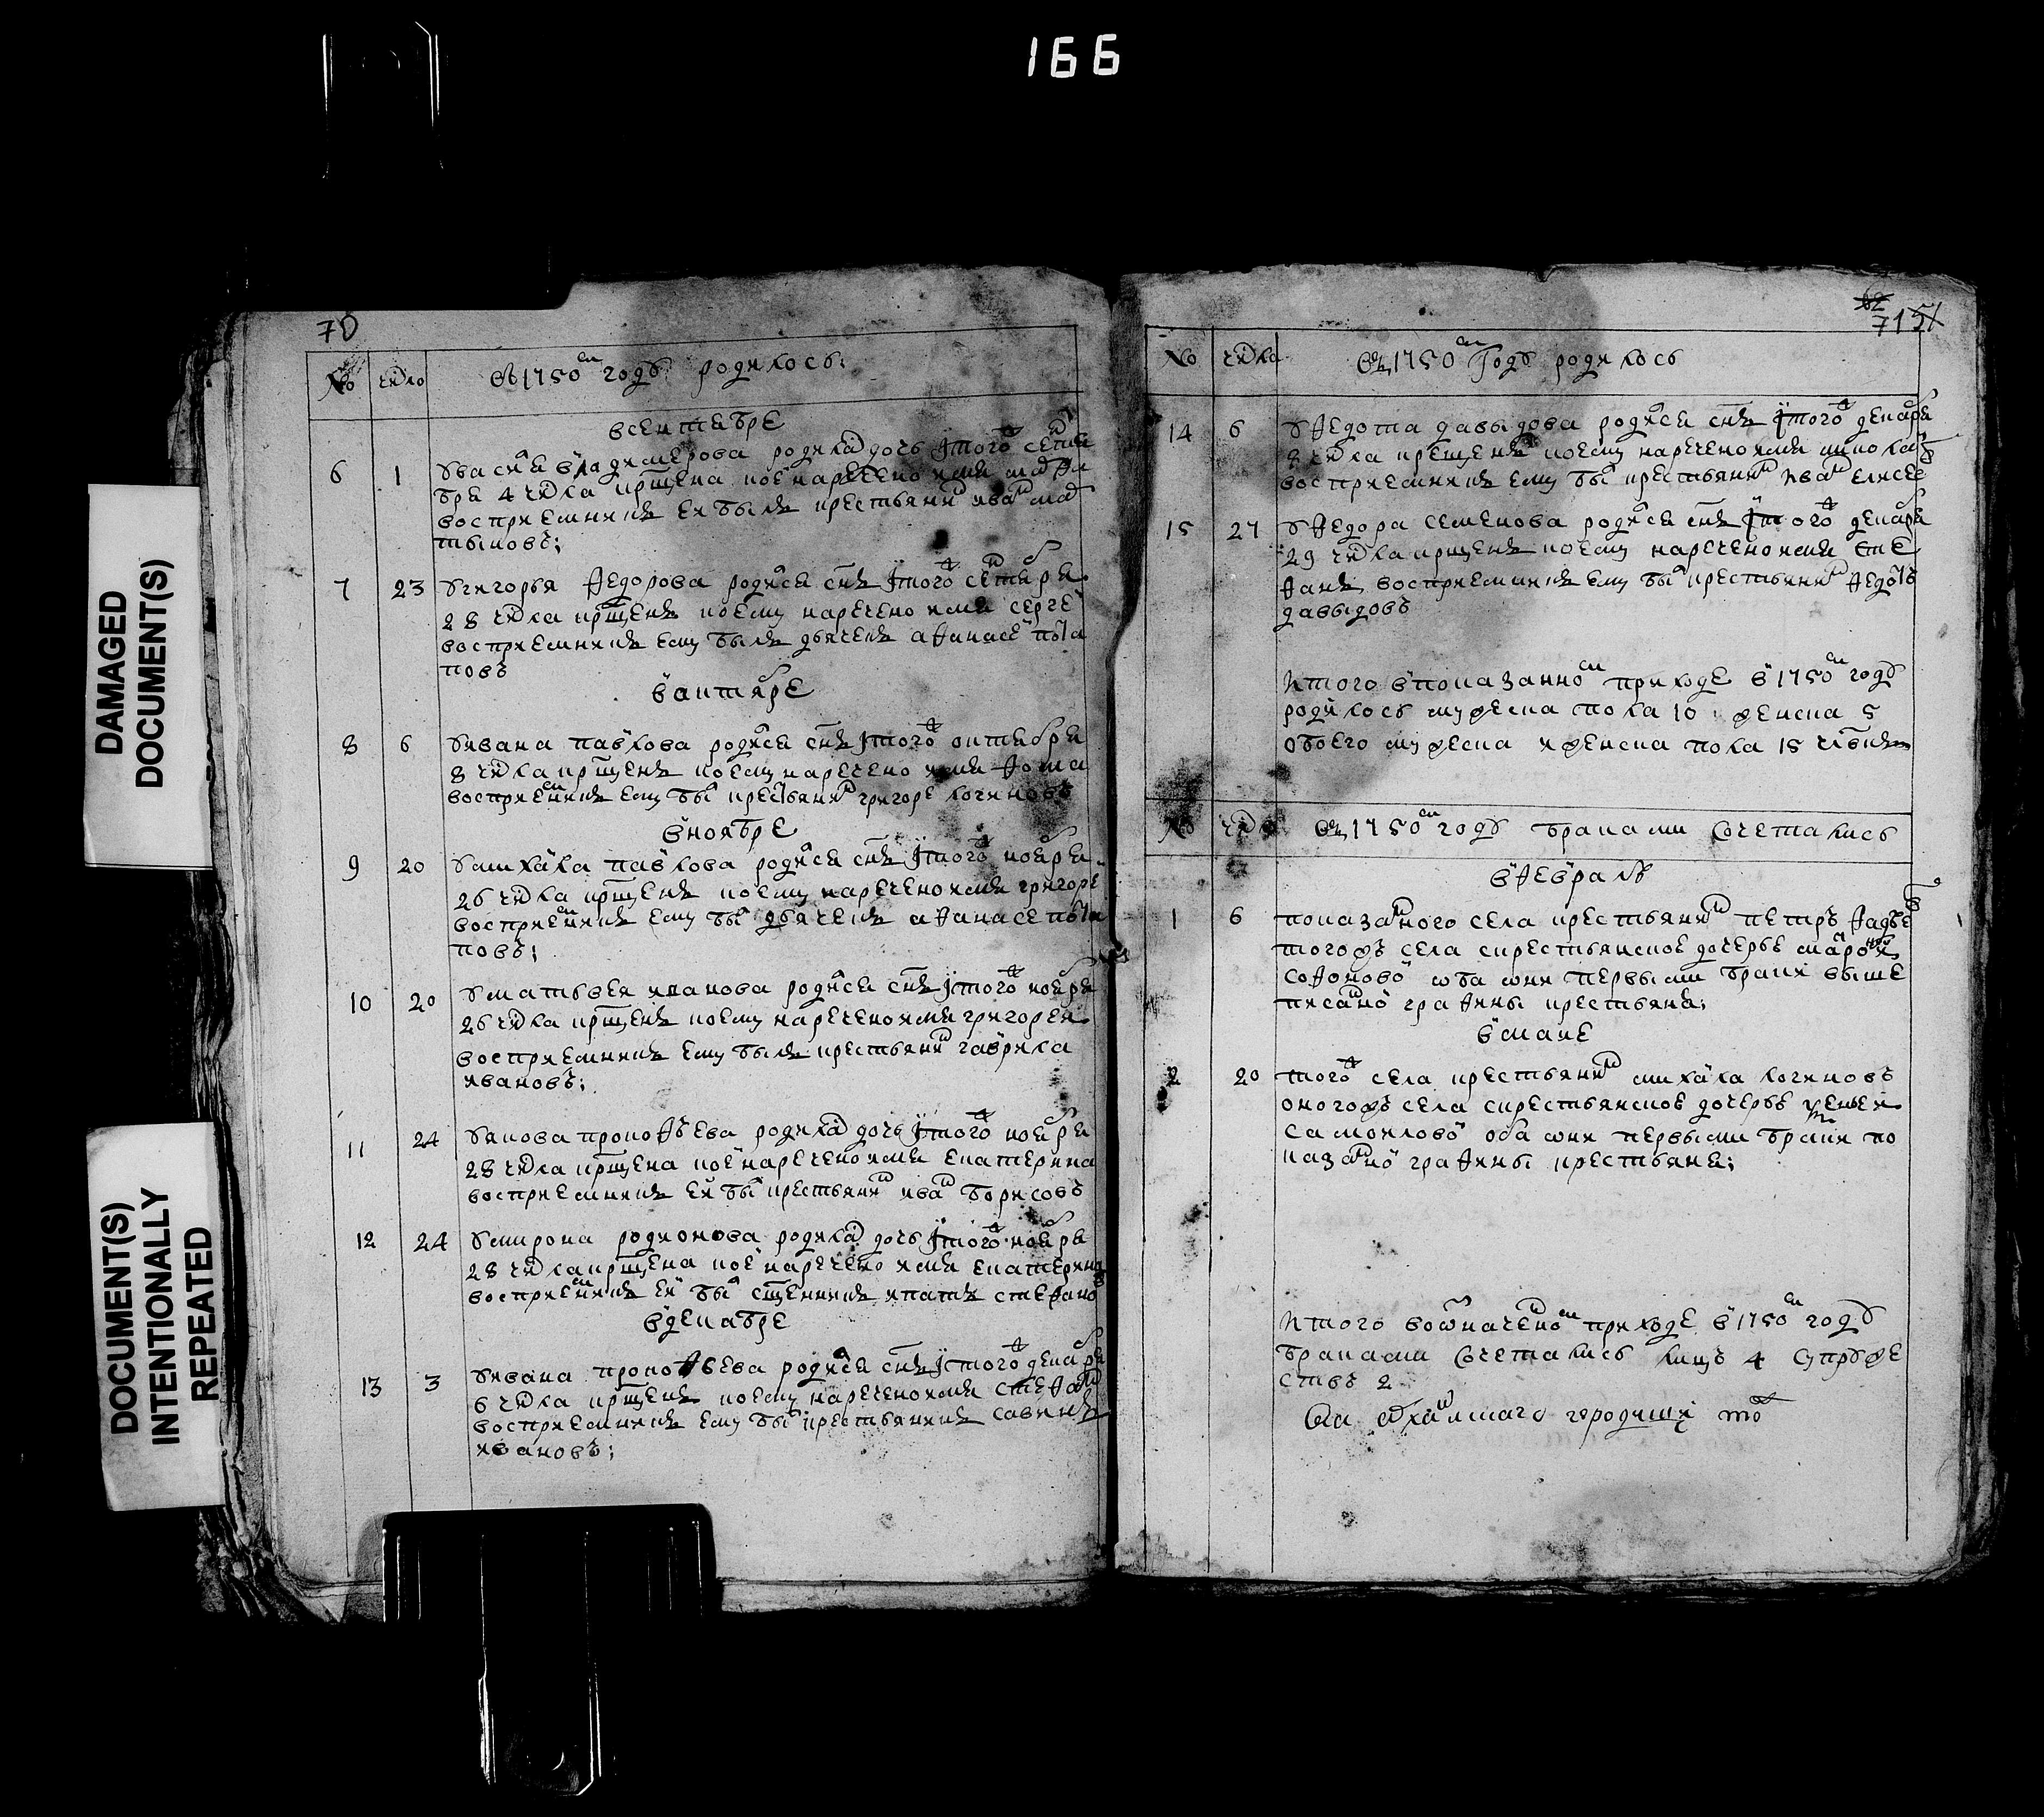 166
DAMAGED
DOCUMENT(S)
DOCUMENT(S)
INTENTIONALLY
REPEATED
70
№ число въ 1750м году родилось:
всентебре
6 1 У васил владимерова родилас дочь и того ж сентеб
бре 4 числа крщена и поеи наречено имя
восприемникъ еи былъ крестьянин иван мар
тыновъ;
7 23 У григорья федорова родился снъ и того ж сентебря
28 числа крщенъ и поему наречено имя сергеи
восприемникъ ему былъ дьячекъ афанасеи пота
повъ
в октябре
8 6 У ивана павлова родился снъ и того ж октебря
8 числа крщенъ и поему наречено имя фома
восприемникъ ему был крестьянин григореи логиновъ
в ноябре
9 20 У михаила павлова родился снъ и того ж ноября
26 числа крщенъ поему наречено имя григореи
восприемникъ ему был дьячекъ афанасеи пота
повъ;
10 20 У матьвея иванова родился снъ и того ж ноября
26 числа крщенъ поему наречено имя григореи
восприемникъ ему былъ крестьянин гаврила
ивановъ;
11 24 У якова прокофьева родилас дочь и того ж ноября
28 числа крщена и поеи наречено имя екатерина
восприемникъ еи был крестьянин иван борисовъ
12 24 У мирона родионова родилас дочь и того ж ноября
28 числа крщена поеи наречено имя екатерина
восприемникъ еи был сщенникъ ипатъ стефанов
в декабре
13 3 У ивана прокофьева родился снъ и того ж декабря
6 числа крщенъ поему наречено имя стефан
восприемникъ ему был крестьянинъ савинъ
ивановъ;
62
71 51
№ число въ 1750м году родилось
14 6 У федота давыдова родился снъ и того ж декабря
8 числа крещенъ поему наречено имя николаи
восприемникъ ему был крестьянин иван елисеев
15 27 У федора семенова родился снъ и того ж декабря
29 числа крщенъ поему наречено имя сте
фанъ восприемникъ ему был крестьянин федотъ
давыдовъ
Итого в показанном приходе в 1750м году
родилось мужеска пола 10 женска 5
обоего мужеска и женска пола 15 члвкъ
№ число въ 1750м году браками сочетались
в феврале
1 6 показанного села крестьянин петръ фадеев
тогожъ села с крестьянскою дочерью
софоновои оба они первыми браки выше
писанои графини крестьяне;
в маие
2 20 того ж села крестьянин михаила логиновъ
оногожъ села с крестьянскою дочерью
самоиловои оба они первыми браки по
казанои графини крестьяне;
Итого во означеном приходе в 1750м году
браками сочетались лицъ 4 супруже
ствъ 2